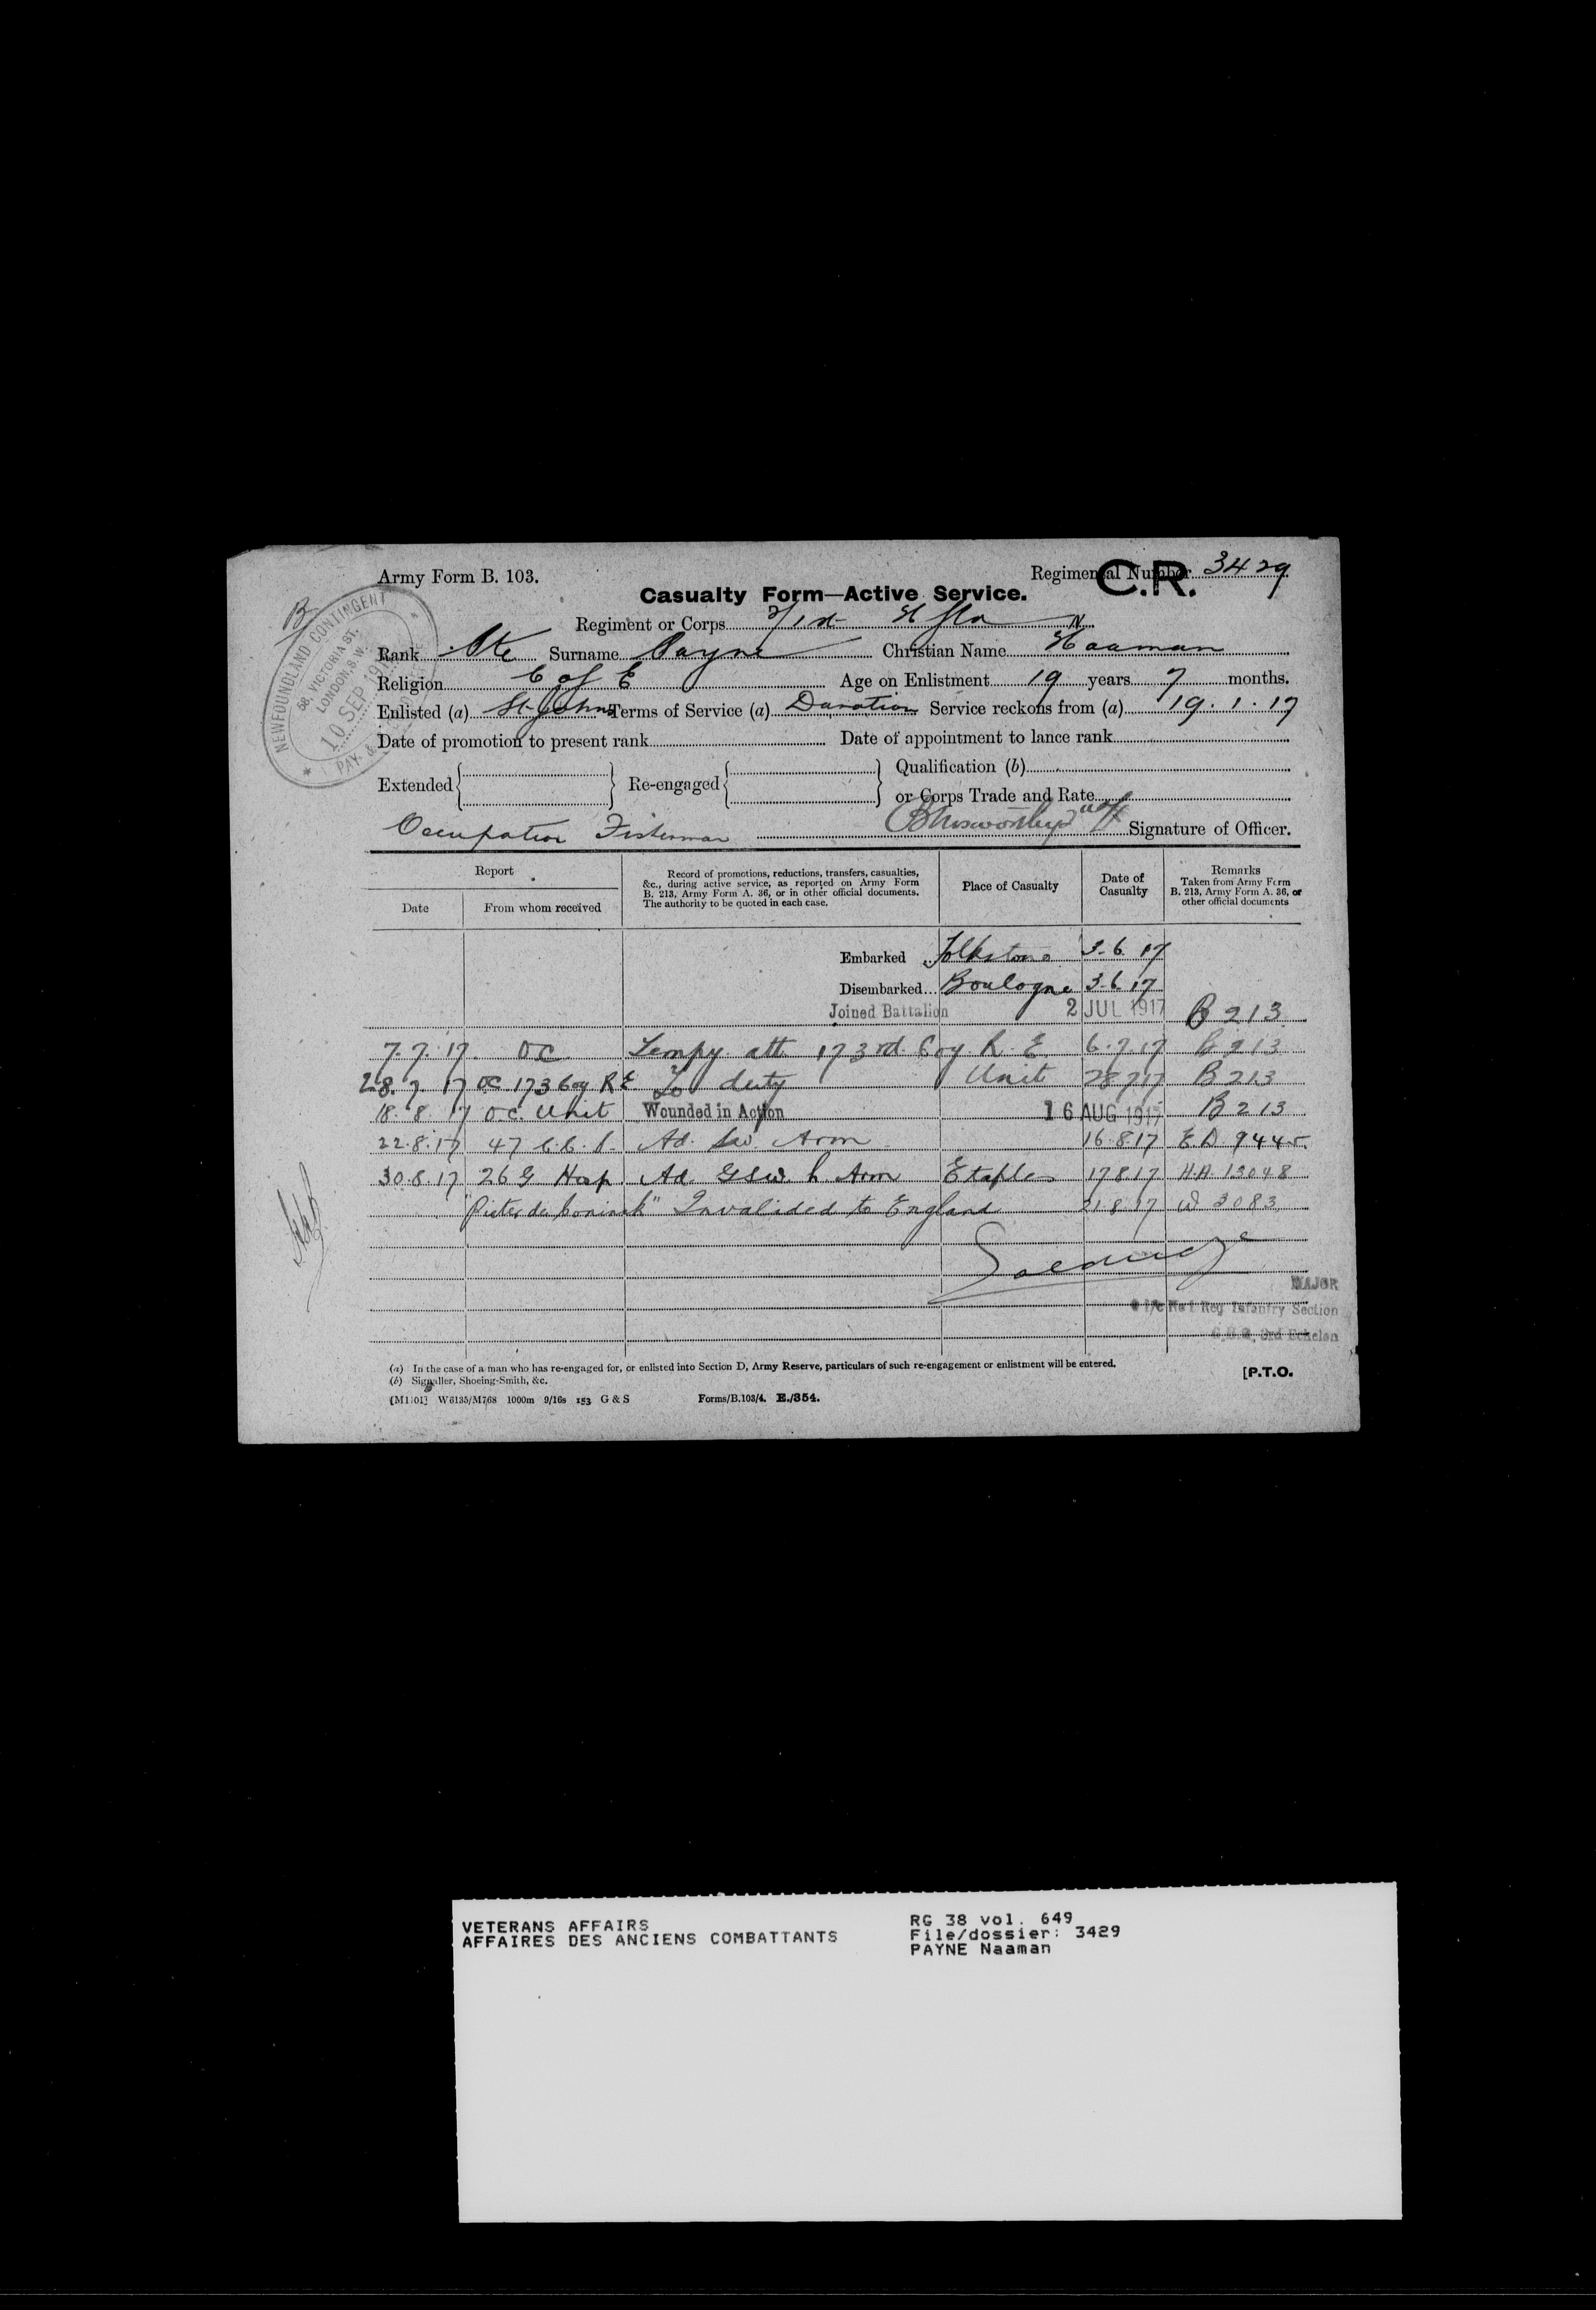 Army Form B. 103.
Regimental Number 3429
C.R.
Casualty Form—Active Service.
B
NEWFOUNDLAND CONTINGENT
58, VICTORIA ST.
LONDON, S.W.
10 SEP 191
PAY &
Regiment or Corps 2/1st Nfld
Rank Pte Surname Payne Christian Name Naaman
Religion C of E Age on Enlistment 19 years 7 months.
Enlisted (a) St. Johns Terms of Service (a) Duration Service reckons from (a) 19.1.17
Date of promotion to present rank Date of appointment to lance rank
Extended Re-engaged Qualification (b)
or Corps Trade and Rate
Occupation Fisherman Signature of Officer.
Report
Date
From whom received
Record of promotions, reductions, transfers, casualties,
&c., during active service, as reported on Army Form
B. 213, Army Form A. 36, or in other official documents.
The authority to be quoted in each case.
Place of Casualty
Date of
Casualty
Remarks
Taken from Army Form
B. 213, Army Form A. 36, or
other official documents
Embarked Folkstone 3.6.17
Disembarked... Boulogne 3.6.17
Joined Battalion 2 JUL 1917 B213
7.7.17 OC Tempy. att. 173rd Coy R.E. 6.7.17 B213
28.7.17 OC 173 Coy RE To duty Unit 28.7.17 B213
18.8.17 O.C. Unit Wounded in Action 16 AUG 1917 B213
22.8.17 47 C.C.S. Ad. Sw. Arm 16.8.17 E.D 9445
30.8.17 26 G Hosp Ad. GSW. L Arm Etaples 17.8.17 H.A. 13048
"Pieter de Coninck" Invalided to England 21.8.17 W 3083
MAJOR
i/c No 1 Reg Infantry Section
G.H.Q. 3rd Echelon
(a) In the case of a man who has re-engaged for, or enlisted into Section D, Army Reserve, particulars of such re-engagement or enlistment will be entered.
(b) Signaller, Shoeing-Smith, &c.
[P.T.O.
W6135/M768 1000m 9/16s 153 G & S Forms/B.103/4. E./354.
VETERANS AFFAIRS
AFFAIRES DES ANCIENS COMBATTANTS
RG 38 vol. 649
File/dossier: 3429
PAYNE Naaman